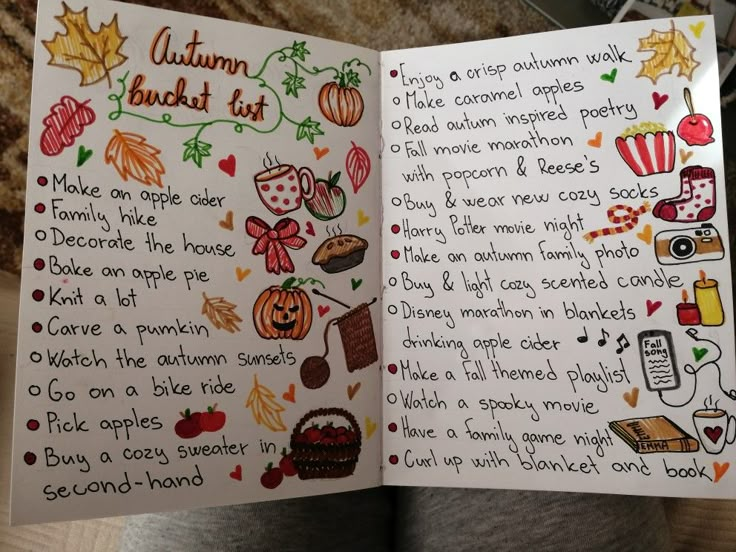 Autumn
bucket list
Make an apple cider
Family hike
Decorate the house
Bake an apple pie
Knit a lot
Carve a pumkin
Watch the autumn sunsets
Go on a bike ride
Pick apples
Buy a cozy sweater in
second-hand
Enjoy a crisp autumn walk
Make caramel apples
Read autum inspired poetry
Fall movie marathon
with popcorn & Reese's
Buy & wear new cozy socks
Harry Potter movie night
Make an autumn family photo
Buy & light cozy scented candle
Disney marathon in blankets
drinking apple cider
Fall
song
Make a Fall themed playlist
Watch a spooky movie
Have a family game night
EMMA
Curl up with blanket and book